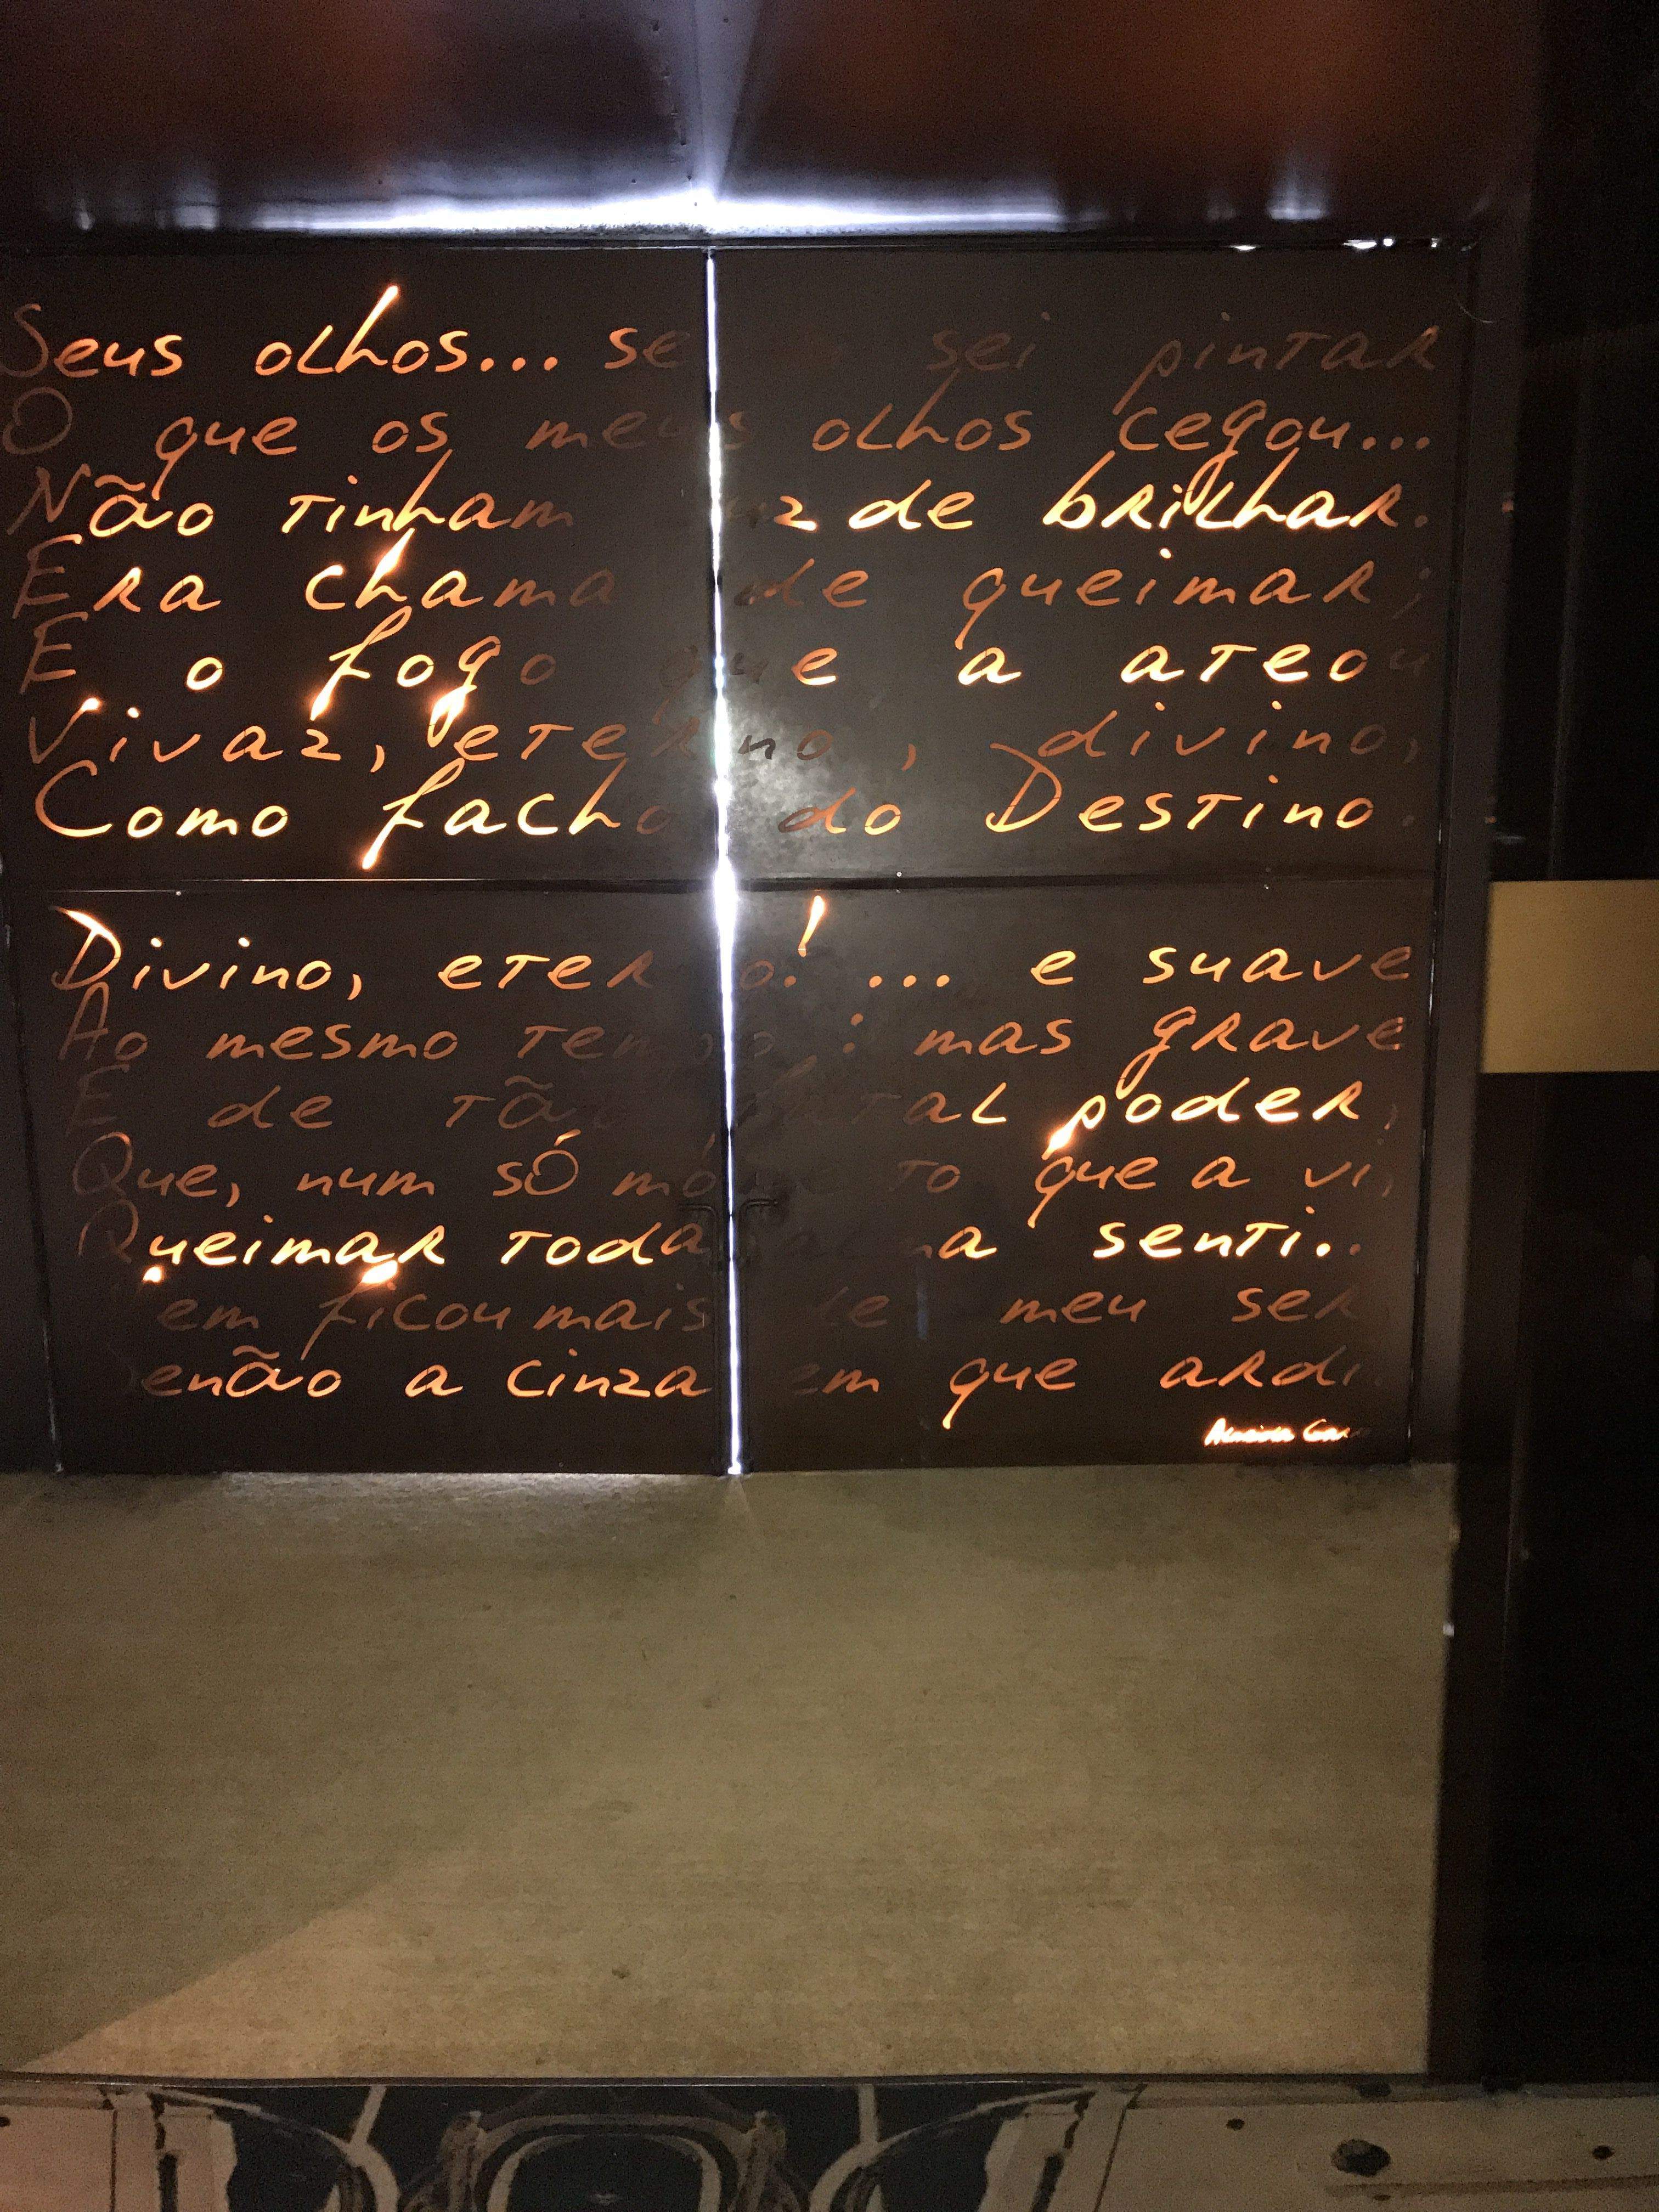 Seus olhos... se sei pintar
O que os meus olhos cegou...
Não tinham luz de brilhar.
Era chama de queimar;
E o fogo que a ateou
Vivaz, eterno, divino,
Como facho do Destino.
Divino, eterno! ... e suave
Ao mesmo tempo: mas grave
E de tão fatal poder,
Que, num só momento que a vi,
Queimar toda alma senti...
Nem ficou mais de meu ser,
Senão a cinza em que ardi.
Almeida Garrett